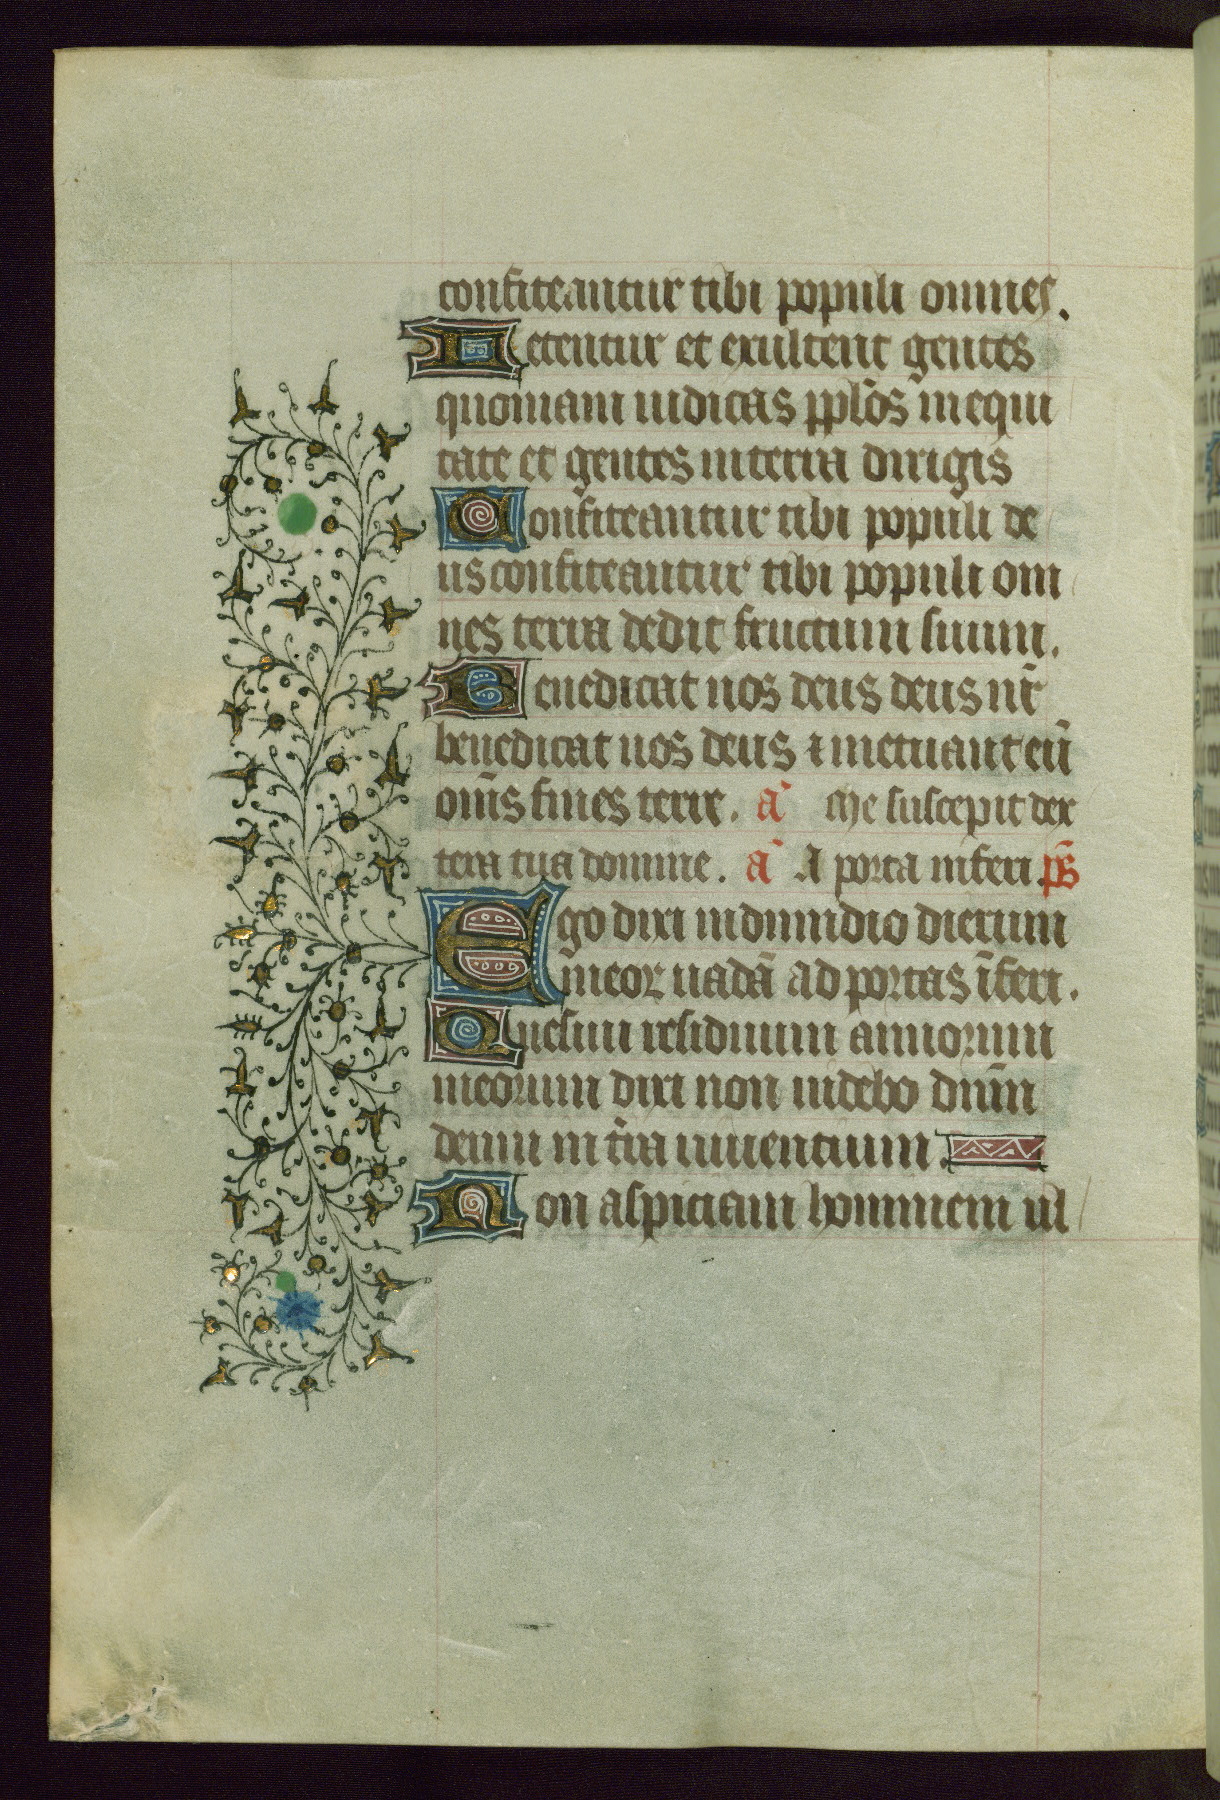 confiteantur tibi populi omnes.
Letentur et exultent gentes
quoniam iudicas pplōs in equi
tate et gentes in terra dirigis
Confiteantur tibi populi de
us confiteantur tibi populi om
nes terra dedit fructum suum.
Benedicat nos deus deus nr̄
benedicat nos deus ⁊ metuant eū
om̄s fines terre. a͂ Me suscepit dex
tera tua domine. a͂ A porta inferi. ps̄
Ego dixi in dimidio dierum
meoꝝ uadā ad portas īferi.
Quesiui residuum annorum
meorum dixi non uidebo dnm̄
deum in tr̄a uiuentium.
Non aspiciam hominem ul